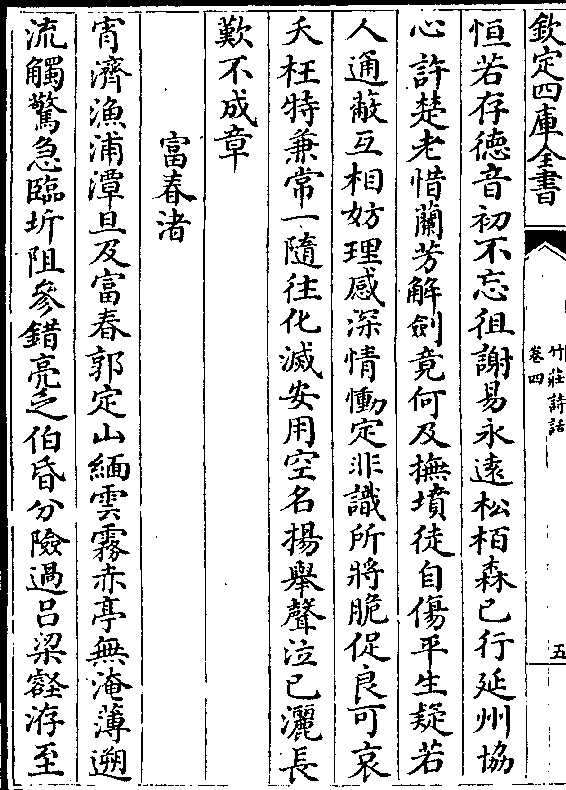 欽定四庫全書
竹莊詩話
卷四
五
恒若存德音初不忘徂謝易永遠松栢森已行延州協
心許楚老惜蘭芳解劍竟何及撫墳徒自傷平生疑若
人通蔽互相妨理感深情慟定非識所將脆促良可哀
夭枉特兼常一隨往化滅安用空名揚舉聲泣已灑長
歎不成章
富春渚
宵濟漁浦潭旦及富春郭定山緬雲霧赤亭無淹薄遡
流觸驚急臨圻阻參錯亮乏伯昏分險過吕梁壑洊至